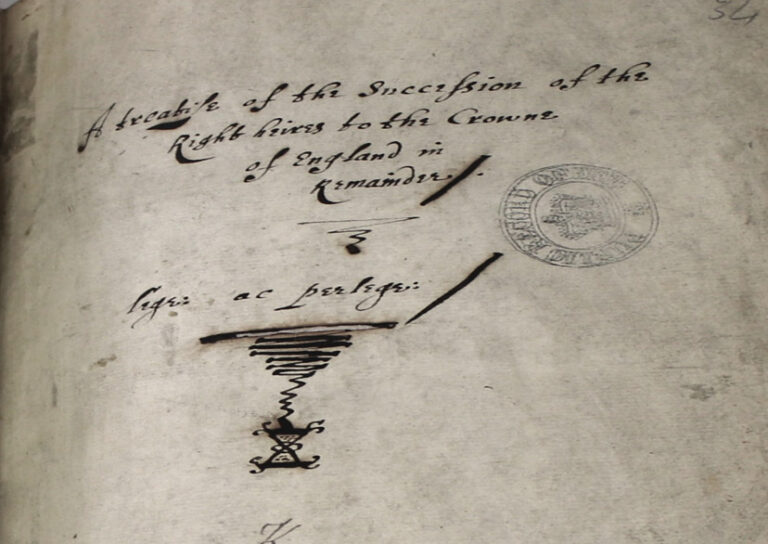 34
A treatise of the Succession of the
Right heires to the Crowne
of England in
Remainder
PUBLIC RECORD OFFICE
lege: ac perlege:
K